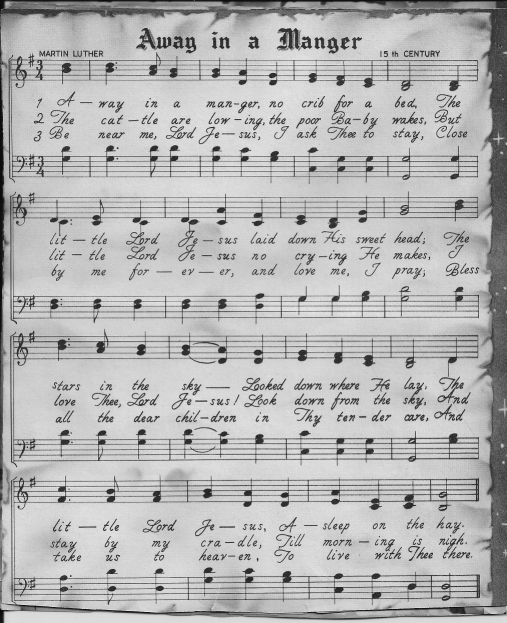 Away in a Manger
MARTIN LUTHER 15 th CENTURY
3 4
1 A — way in a man-ger, no crib for a bed, The
2 The cat — tle are low — ing, the poor Ba — by wakes, But
3 Be near me, Lord Je — sus, I ask Thee to stay, Close
3 4
lit — tle Lord Je — sus laid down His sweet head; The
lit — tle Lord Je — sus no cry — ing He makes, I
by me for — ev — er, and love me, I pray; Bless
stars in the sky — Looked down where He lay, The
love Thee, Lord Je — sus! Look down from the sky, And
all the dear chil — dren in Thy ten — der care, And
lit — tle Lord Je — sus, A — sleep on the hay.
stay by my cra — dle, Till morn — ing is nigh.
take us to heav — en, To live with Thee there.